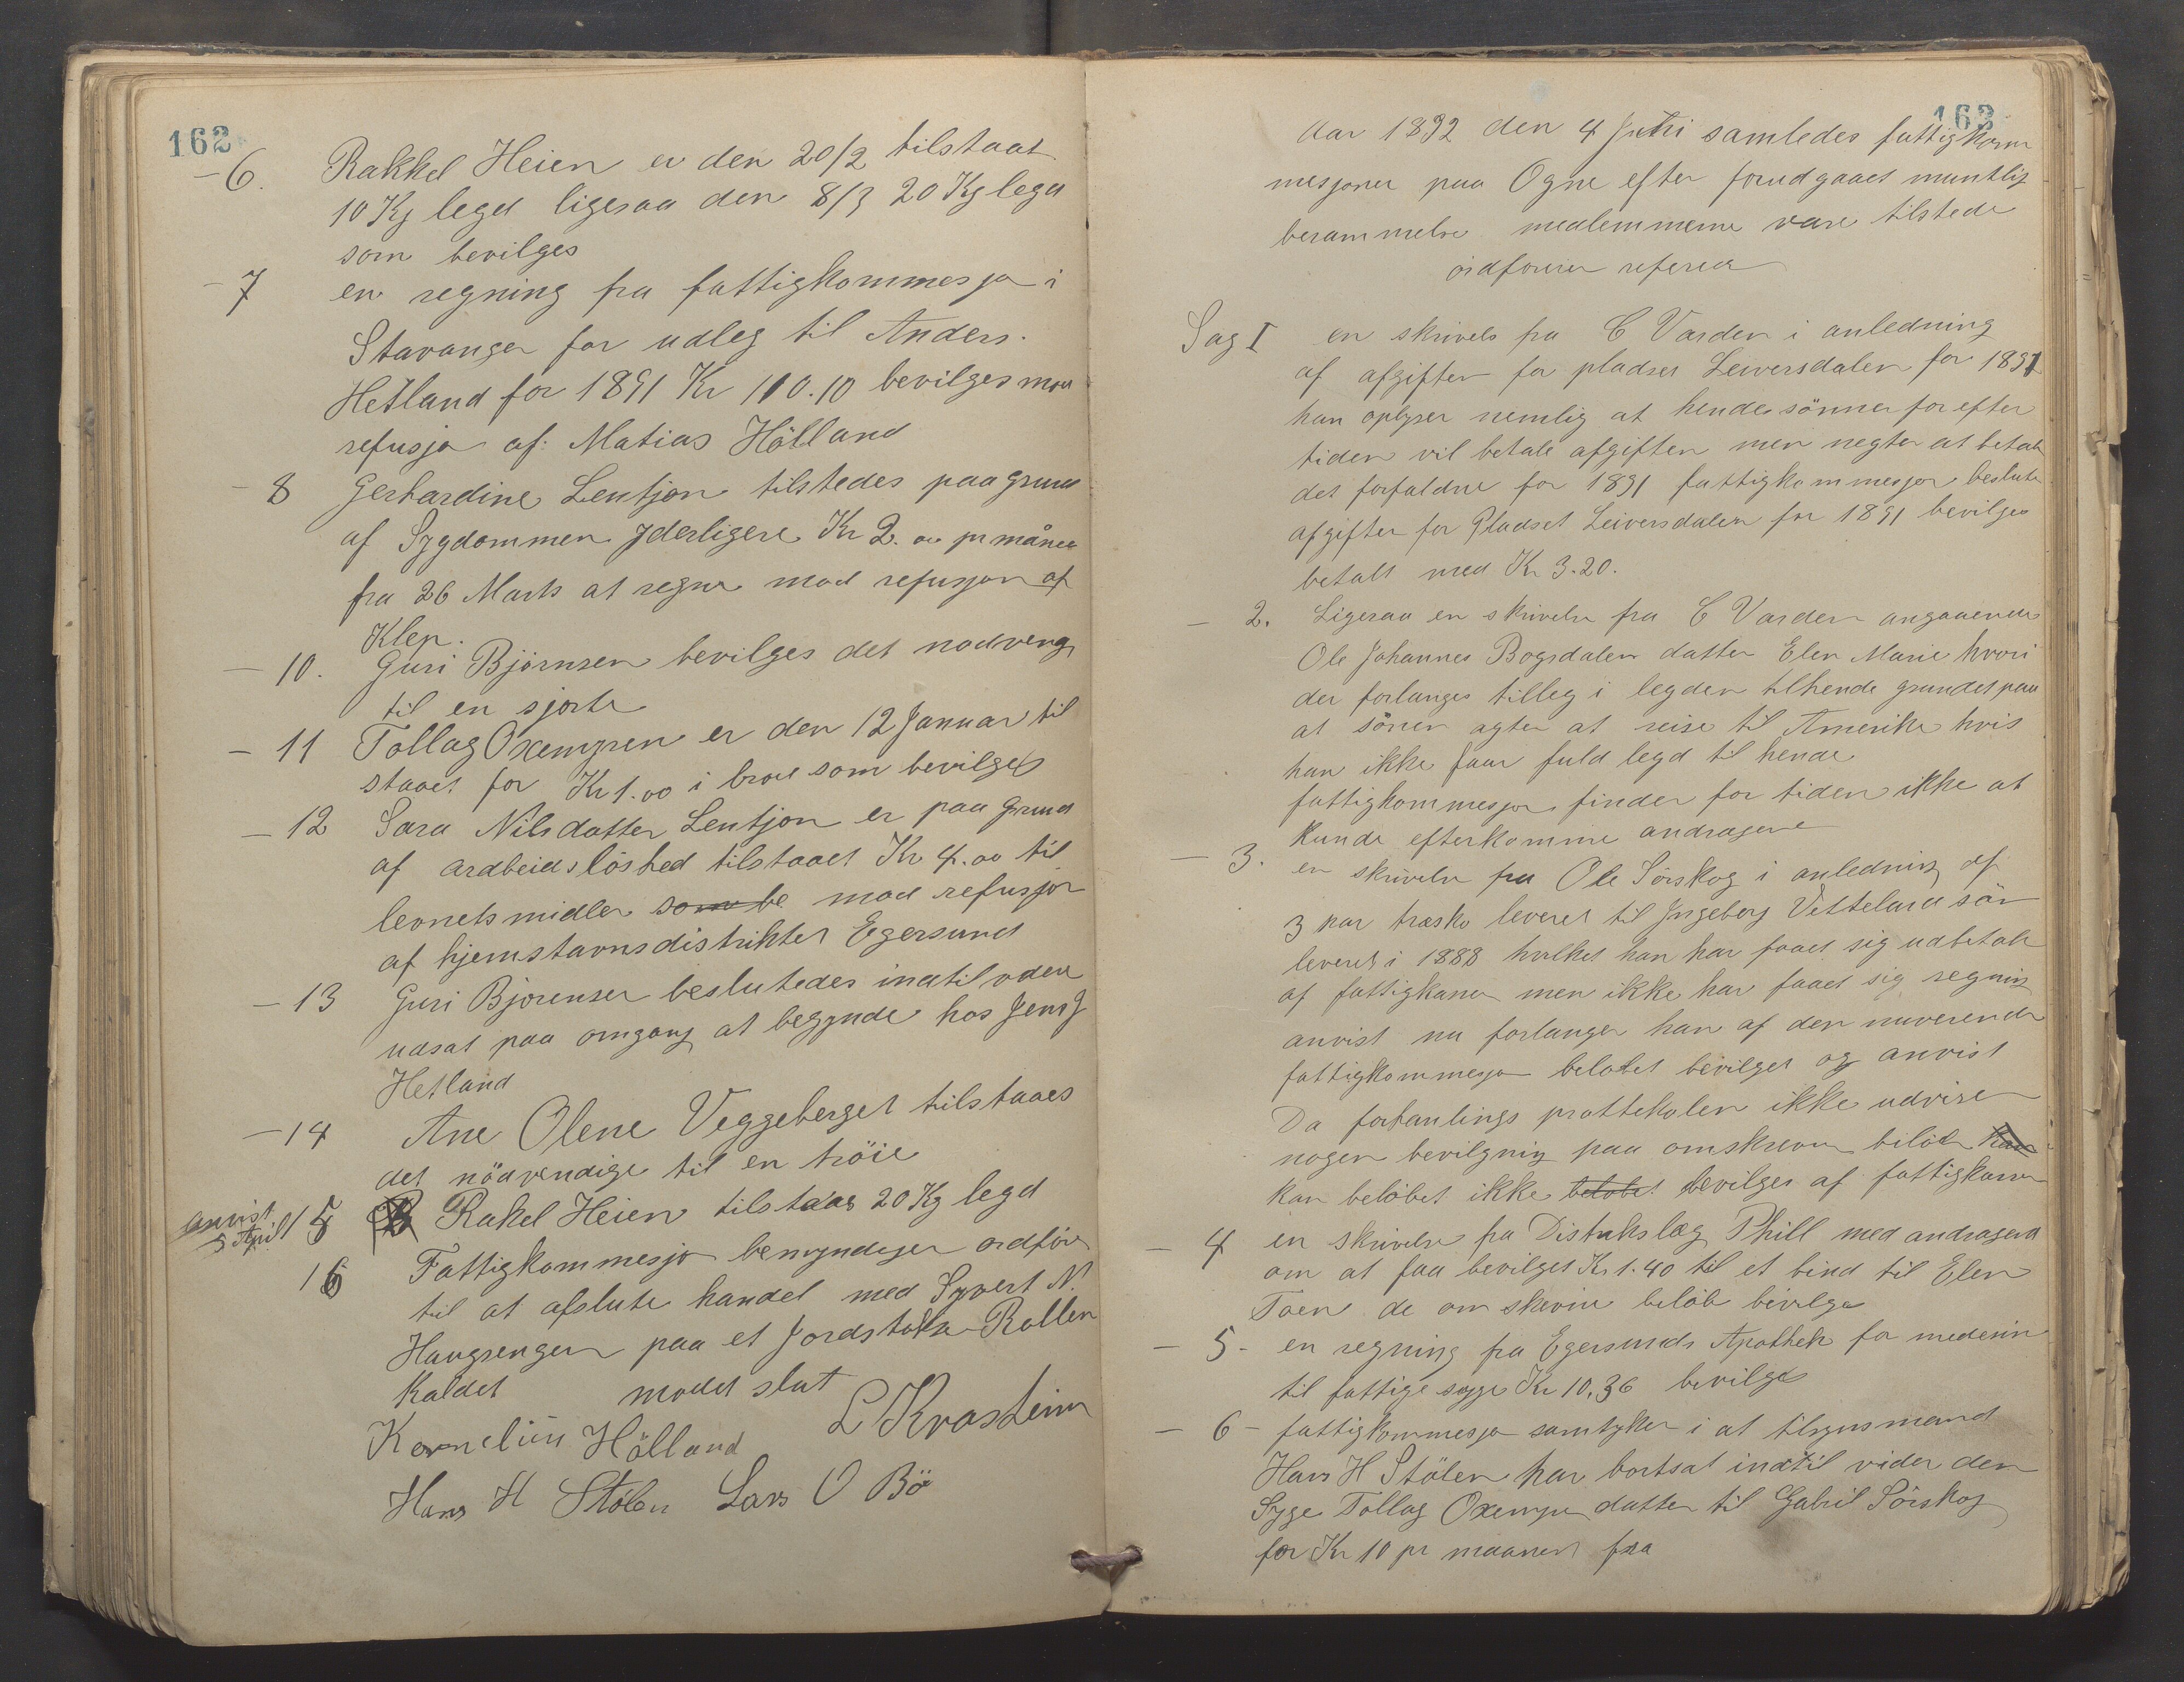 162
-6. Rakkel Heien er den 20/2 tilstaat
10 Kg legd ligesaa den 8/3 20 Kg legd
som bevilges
-7 en regning fra fattigkommesjo i
Stavanger for udleg til Anders.
Hetland for 1891 Kr 110.10 bevilges mod
refusjo af: Matias Hölland
-8 Gerhardine Lentjon tilstedes paa grund
af Sygdommen yderligere Kr 2. oo pr måned
fra 26 Marts at regne mod refusjon af
Klep.
-10. Guri Björnsen bevilges det nodveng
til en sjorte
-11 Tollag Oxemyren er den 12 Januar til
staaet for Kr 1.00 i brod som bevilges
-12 Sara Nilsdatter Lentjon er paa grund
af ardbeidslöshed tilstaaet Kr 4.00 til
levnetsmidler som be mod refusjon
af hjemstavnsdistriktet Egersund
-13 Guri Bjorensen beslutedes indtil viden
udsat paa omgang at begynde hos Jens J
Hetland
-14 Ane Olene Veggeberget tilstaaes
det nödvendige til en tröie
anvist
5 April
15 Rakel Heien tilstaaes 20 Kg legd
16 Fattigkommesjo bemyndiger ordför
til at afslute handel med Syvert N.
Haugsengen paa et Jordstokke Rallen
kaldet modet slut
Kornelius Hölland L Kvasheim
Hans H Stölen Lars O Bö
163
Aar 1892 den 4 Juni samledes fattigkom
mesjoner paa Ogne efter forudgaaet muntlig
berammelse medlemmerne vare tilstede
ordforeren refered
Sag I en skrivels fra C Varden i anledning
af afgiften for pladset Leiversdalen for 1891
han oplyser nemlig at hendes sönner for efter
tiden vil betale afgiften men negter at betale
det forfaldne for 1891 fattigkommesjon beslute
afgiften for Pladset Leiversdalen for 1891 bevilges
betalt med Kr 3.20.
-2. Ligesaa en skrivelse fra C Varden angaaende
Ole Johannes Bogsdalen datter Elen Marie hvori
der forlanges tilleg i legden tilhende grundet paa
at sönen agter at reise til Amerika hvis
han ikke faar fuld legd til hende
fattigkommesjon finder for tiden ikke at
kunde efterkomme andragene
-3. en skrivelse fra Ole Sörskog i anledning af
3 par træsko leveret til Ingeborg Vetteland sön
leveret i 1888 hvilket han har faaet sig udbetalt
af fattigkasen men ikke har faaet sig regning
anvist nu forlanger han af den nuverende
fattigkommesjo belobet bevilget og anvist
Da forhanlings prottekolen ikke udviser
nogen bevilgning paa omskreven belöb kan
kan belöbet ikke belobet bevilges af fattigkasen
-4 en skrivelse fra Distrikslæg Phill med andragend
om at faa bevilget Kr 1.40 til et bind til Elen
Toen de om skevne belöb bevilges
-5- en regning fra Egersunds Apothek for medesin
til fattige syge Kr 10,36 bevilges
-6- fattigkommesjo samtyker i at tilsynsmand
Hans H Stölen har bortsat indtil vider den
Syge Tollag Oxemyr datter til Gabril Sörskog
for Kr 10 pr maaned fra